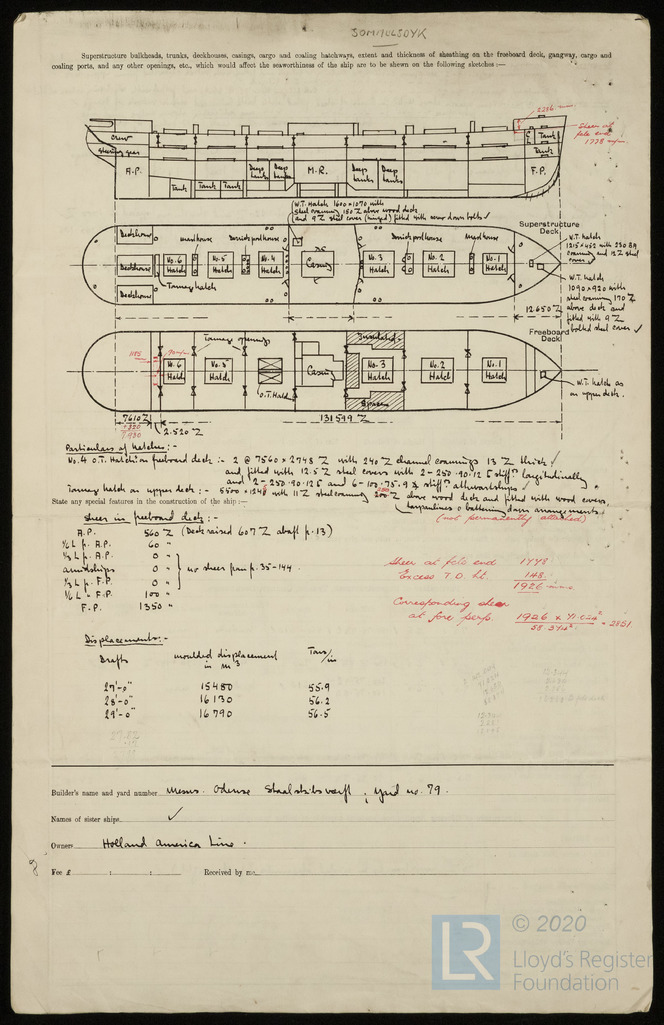 SOMMELSDYK
Superstructure bulkheads, trunks, deckhouses, casings, cargo and coaling hatchways, extent and thickness of sheathing on the freeboard deck, gangway, cargo and
coaling ports, and any other openings, etc., which would affect the seaworthiness of the ship are to be shewn on the following sketches:—
2286
Sheer at
fcle end
1778 m/m.
Crew
Steering gear
A.P.
Tank
Tank
Tank
Deep
tanks
Deep
tanks
M.R.
Deep
tanks
Deep
tanks
Tank
Tank
F.P.
W.T. Hatch 1600 x 1070 with
steel coaming 150 Z above wood deck
and 9 Z steel cover (hinged) fitted with screw down bolts ✓
Superstructure
Deck
W.T. hatch
1215 x 452 with 230 BA
coaming and 12 Z steel
cover ✓
Deckhouse
Deckhouse
Deckhouse
masthouse
Derrick post house
Derrick post house
Masthouse
No. 6
Hatch
No. 5
Hatch
No. 4
Hatch
Casing
No. 3
Hatch
No. 2
Hatch
No. 1
Hatch
Tonnage hatch
W.T. hatch
1090 x 920 with
steel coaming 170 Z
above deck and
fitted with 9 Z
bolted steel cover ✓
12650 Z
Freeboard
Deck
Tonnage openings
Insulated
1185
No. 6
Hatch
No. 5
Hatch
O.T. Hatch
Casing
No. 3
Hatch
No. 2
Hatch
No. 1
Hatch
Spaces
W.T. hatch as
on upper deck.
7610 Z
7930
2.520 Z
131599 Z
Particulars of hatches:-
No. 4 O.T. Hatch on freeboard deck :- 2 @ 7560 x 2748 Z with 240 Z channel coamings 13 Z thick ✓
and fitted with 12.5 Z steel covers with 2-250.90.12.5 stiffrs longitudinally
and 2-250.90.12.5 and 6-100.75.9 Z stiffrs athwartships ✓
Tonnage hatch on upper deck :- 5400 x 1248 with 11 Z steel coaming 200 Z above wood deck and fitted with wood covers,
tarpaulins & battening down arrangements.
(not permanently attached)
State any special features in the construction of the ship:—
Sheer in freeboard deck :-
A.P. 560 Z (Deck raised 607 Z abaft fr. 13)
1/6 L fr. A.P. 60 "
1/3 L fr. A.P. 0 "
amidships 0 " } no sheer from fr. 35-144.
1/3 L fr. F.P. 0 "
1/6 L " F.P. 100 "
F.P. 1350 "
Sheer at fcle end 1778
Excess T.D. ht. 148
1926 m/m.
Corresponding sheer
at fore perp. 1926 x 71.024²
= 2851.
Displacements:-
Drafts moulded displacement in m³ Tons/in
27'-0" 15480 55.9
28'-0" 16130 56.2
29'-0" 16790 56.5
Builder's name and yard number Messrs. Odense Staalskibsvaerft ; Yard no. 79.
Names of sister ships ✓
Owners Holland America Line.
Fee £ : : Received by me
© 2020
LR
Lloyd's Register
Foundation